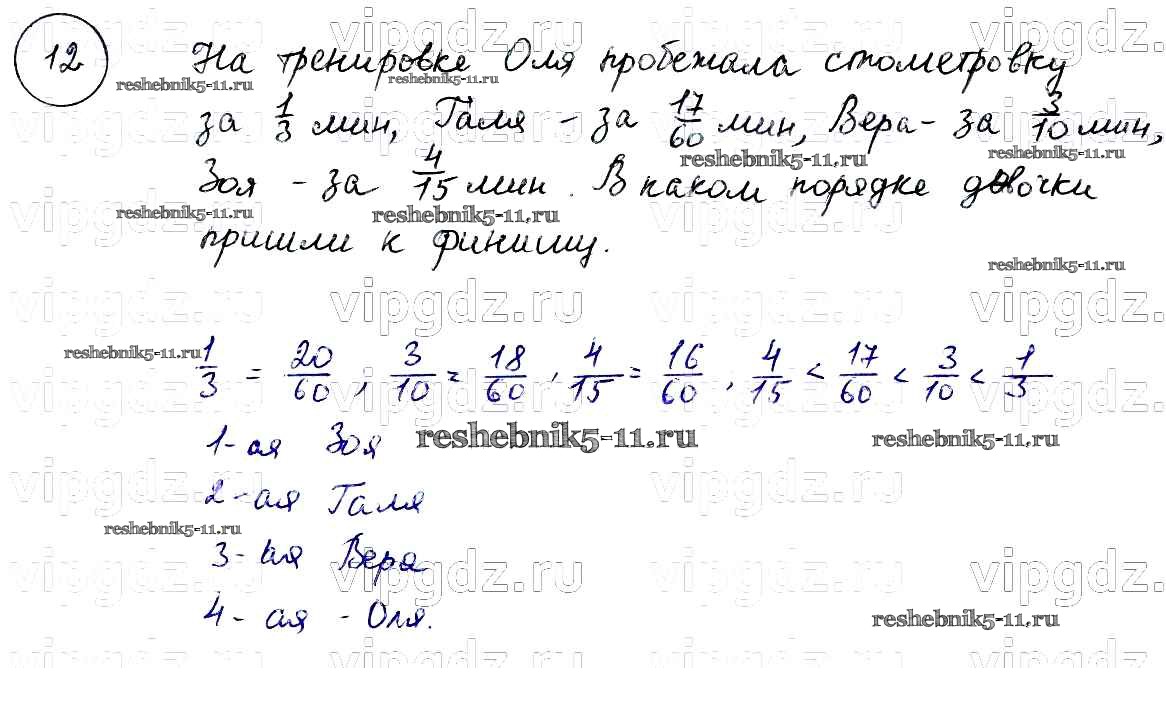 12 На тренировке Оля пробежала стометровку
за 1/3 мин, Галя - за 17/60 мин, Вера - за 3/10 мин,
Зоя - за 4/15 мин. В каком порядке девочки
пришли к финишу.
1/3 = 20/60, 3/10 = 18/60, 4/15 = 16/60, 4/15 < 17/60 < 3/10 < 1/3
1-ая Зоя
2-ая Галя
3-ая Вера
4-ая - Оля.
vipgdz.ru
reshebnik5-11.ru